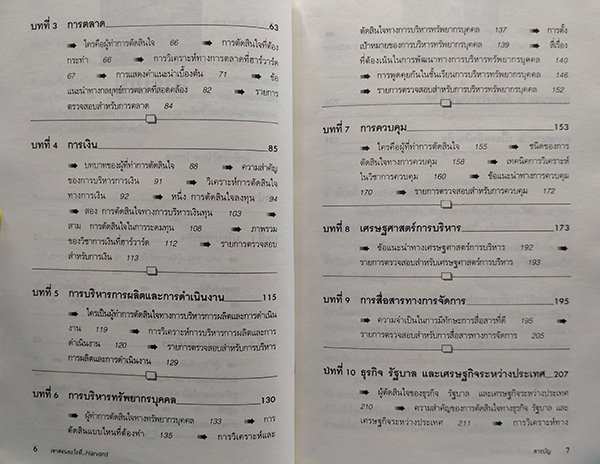 บทที่ 3 การตลาด 63
➠ ใครคือผู้ทำการตัดสินใจ 66 ➠ การตัดสินใจที่ต้อง
กระทำ 66 ➠ การวิเคราะห์ทางการตลาดที่ฮาร์วาร์ด
67 ➠ การแสดงคำแนะนำเบื้องต้น 71 ➠ ข้อ
แนะนำทางกลยุทธ์การตลาดที่สอดคล้อง 82 ➠ รายการ
ตรวจสอบสำหรับการตลาด 84
บทที่ 4 การเงิน 85
➠ บทบาทของผู้ที่ทำการตัดสินใจ 88 ➠ ความสำคัญ
ของการบริหารการเงิน 91 ➠ วิเคราะห์การตัดสินใจ
ทางการเงิน 92 ➠ หนึ่ง การตัดสินใจลงทุน 94
➠ สอง การตัดสินใจทางการบริหารเงินทุน 103 ➠
สาม การตัดสินใจในการระดมทุน 108 ➠ ภาพรวม
ของวิชาการเงินที่ฮาร์วาร์ด 112 ➠ รายการตรวจสอบ
สำหรับการเงิน 113
บทที่ 5 การบริหารการผลิตและการดำเนินงาน 115
➠ ใครเป็นผู้ทำการตัดสินใจทางการบริหารการผลิตและการดำเนิน
งาน 119 ➠ การวิเคราะห์การบริหารการผลิตและการ
ดำเนินงาน 120 ➠ รายการตรวจสอบสำหรับการบริหาร
การผลิตและการดำเนินงาน 129
บทที่ 6 การบริหารทรัพยากรบุคคล 130
➠ ผู้ทำการตัดสินใจทางทรัพยากรบุคคล 133 ➠ การ
ตัดสินใจแบบไหนที่ต้องทำ 135 ➠ การวิเคราะห์และ
6 เขาสอนอะไรที่...Harvard
ตัดสินใจทางการบริหารทรัพยากรบุคคล 137 ➠ การตั้ง
เป้าหมายของการบริหารทรัพยากรบุคคล 139 ➠ สี่เรื่อง
ที่ต้องเน้นในการพัฒนาทางการบริหารทรัพยากรบุคคล 140
➠ การพูดคุยกันในชั้นเรียนการบริหารทรัพยากรบุคคล 146
➠ รายการตรวจสอบสำหรับการบริหารทรัพยากรบุคคล 152
บทที่ 7 การควบคุม 153
➠ ใครคือผู้ที่ทำการตัดสินใจ 155 ➠ ชนิดของการ
ตัดสินใจทางการควบคุม 158 ➠ เทคนิคการวิเคราะห์
ในวิชาการควบคุม 160 ➠ ข้อแนะนำทางการควบคุม
170 ➠ รายการตรวจสอบสำหรับการควบคุม 172
บทที่ 8 เศรษฐศาสตร์การบริหาร 173
➠ ข้อแนะนำทางเศรษฐศาสตร์การบริหาร 192 ➠
รายการตรวจสอบสำหรับเศรษฐศาสตร์การบริหาร 193
บทที่ 9 การสื่อสารทางการจัดการ 195
➠ ความจำเป็นในการมีทักษะการสื่อสารที่ดี 195 ➠
รายการตรวจสอบสำหรับการสื่อสารทางการจัดการ 205
บทที่ 10 ธุรกิจ รัฐบาล และเศรษฐกิจระหว่างประเทศ 207
➠ ผู้ตัดสินใจของธุรกิจ รัฐบาล และเศรษฐกิจระหว่างประเทศ
210 ➠ ความสำคัญของการตัดสินใจทางธุรกิจ รัฐบาล และ
เศรษฐกิจระหว่างประเทศ 211 ➠ การวิเคราะห์ทาง
สารบัญ 7